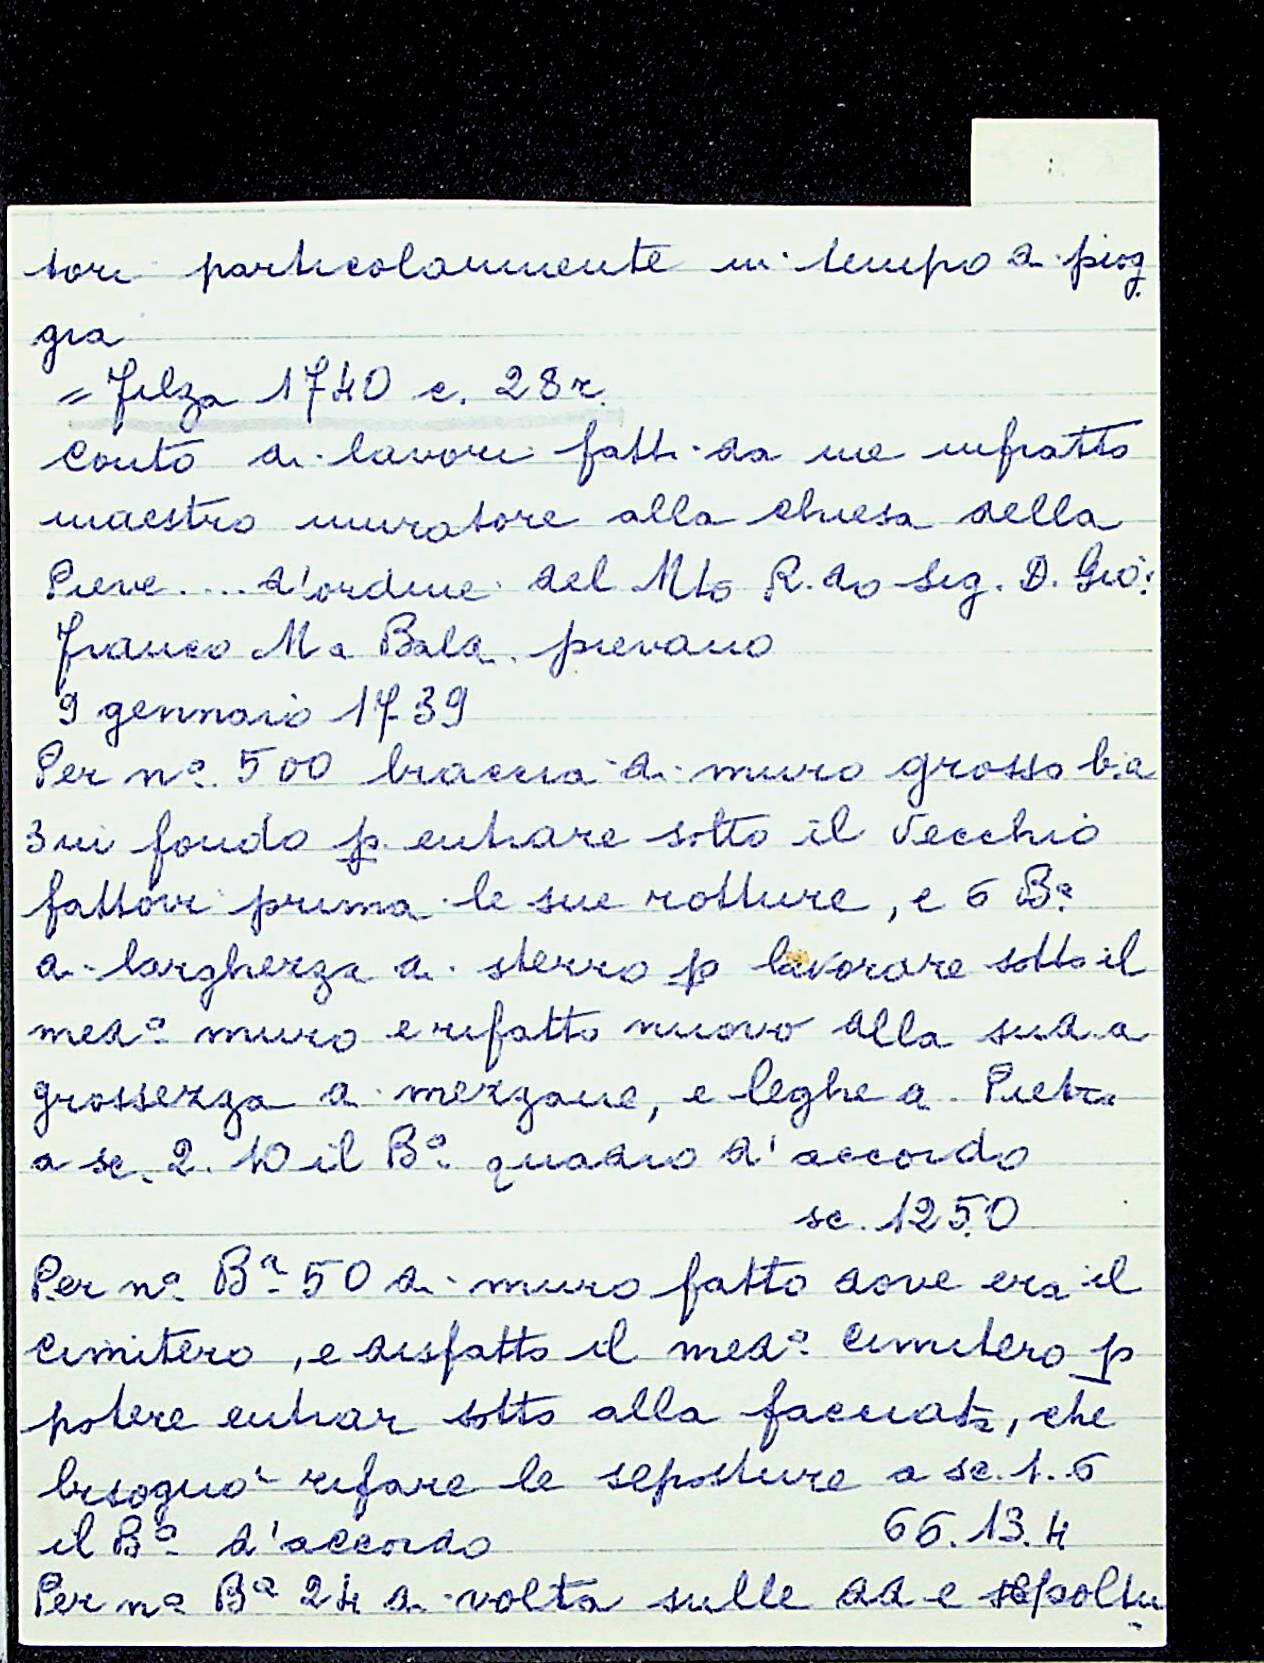 tori particolarmente in tempo di piog
gia
= Filza 1740 c. 28r.
Conto di lavori fatti da me infratto
maestro muratore alla chiesa della
Pieve .... d'ordine del Mto R.do Sig. D. Gio:
Franco Ma Bala pievano
9 gennaio 1739
Per nº 500 braccia di muro grosso b.a
3 in fondo p. entrare sotto il vecchio
fattovi prima le sue rotture, e 6 Bª
di larghezza di sterro p lavorare sotto il
medº muro e rifatto nuovo alla sud.a
grossezza di mezzane, e leghe di Pietra
a sc. 2. 10 il Bº quadro d'accordo
sc. 1250
Per nº Bª 50 di muro fatto dove era il
Cimitero, e disfatto il medº Cimitero p
potere entrar sotto alla facciata, che
bisognò rifare le seposture a sc. 1. 6
il Bº d'accordo 66. 13. 4
Per nº Bª 24 di volta sulle dd e sepoltu